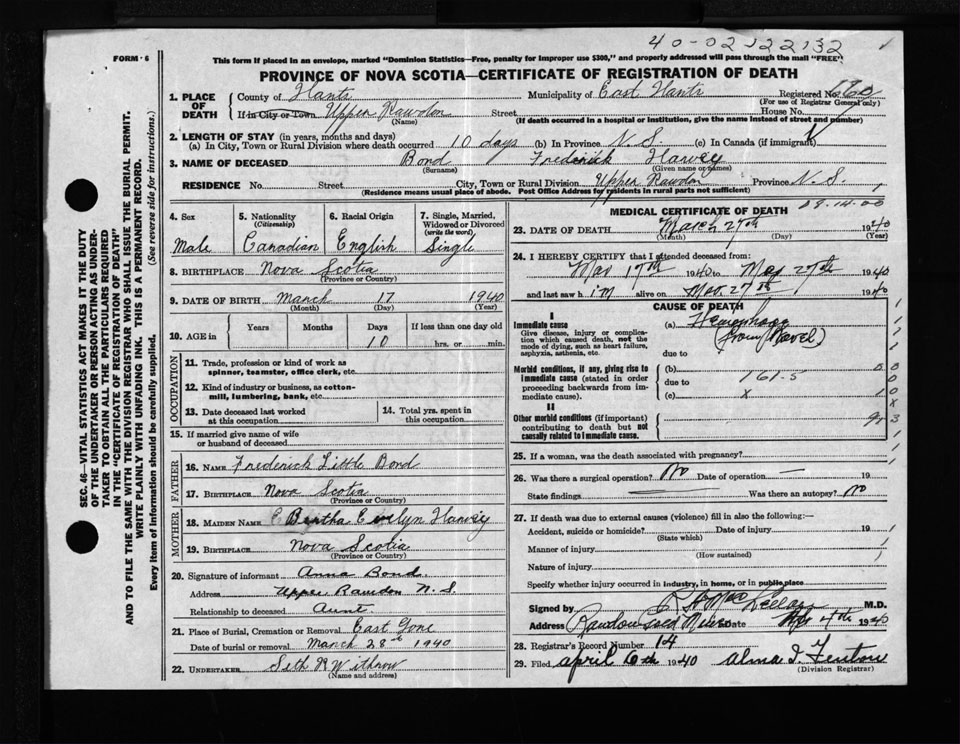 40-02122132
FORM - 6
This form if placed in an envelope, marked "Dominion Statistics—Free, penalty for improper use $300," and properly addressed will pass through the mail "FREE"
PROVINCE OF NOVA SCOTIA—CERTIFICATE OF REGISTRATION OF DEATH
SEC. 46—VITAL STATISTICS ACT MAKES IT THE DUTY
OF THE UNDERTAKER OR PERSON ACTING AS UNDER-
TAKER TO OBTAIN ALL THE PARTICULARS REQUIRED
IN THE "CERTIFICATE OF REGISTRATION OF DEATH"
AND TO FILE THE SAME WITH THE DIVISION REGISTRAR WHO SHALL ISSUE THE BURIAL PERMIT.
WRITE PLAINLY WITH UNFADING INK. THIS IS A PERMANENT RECORD.
Every item of information should be carefully supplied. (See reverse side for instructions.)
1. PLACE OF DEATH
County of Hants Municipality of East Hants Registered No.
(For use of Registrar General only)
If in City or Town Upper Rawdon Street House No.
(Name) (If death occurred in a hospital or institution, give the name instead of street and number)
2. LENGTH OF STAY (in years, months and days)
(a) In City, Town or Rural Division where death occurred 10 days (b) In Province N. S. (c) In Canada (if immigrant)
3. NAME OF DECEASED Bond Frederick Harvey
(Surname) (Given name or names)
RESIDENCE No. Street City, Town or Rural Division Upper Rawdon Province N. S.
(Residence means usual place of abode. Post Office Address for residents in rural parts not sufficient)
4. Sex Male
5. Nationality (Citizenship) Canadian
6. Racial Origin English
7. Single, Married, Widowed or Divorced (write the word) Single
8. BIRTHPLACE Nova Scotia
(Province or Country)
9. DATE OF BIRTH March 17 1940
(Month) (Day) (Year)
10. AGE in Years Months Days 10 If less than one day old hrs. or min.
OCCUPATION
11. Trade, profession or kind of work as spinner, teamster, office clerk, etc.
12. Kind of industry or business, as cotton-mill, lumbering, bank, etc.
13. Date deceased last worked at this occupation
14. Total yrs. spent in this occupation
15. If married give name of wife or husband of deceased
FATHER
16. NAME Frederick Little Bond
17. BIRTHPLACE Nova Scotia
MOTHER
18. MAIDEN NAME Bertha Evelyn Harvey
19. BIRTHPLACE Nova Scotia
(Province or Country)
20. Signature of informant Anna Bond
Address Upper Rawdon N. S.
Relationship to deceased Aunt
21. Place of Burial, Cremation or Removal East Gore
Date of burial or removal March 28th 1940
22. UNDERTAKER Seth R Withrow
(Name and address)
MEDICAL CERTIFICATE OF DEATH
23. DATE OF DEATH March 27th 1940
(Month) (Day) (Year)
24. I HEREBY CERTIFY that I attended deceased from:
Mar 17th 1940 to Mar 27th 1940
and last saw him alive on Mar 27th 1940
CAUSE OF DEATH
I
Immediate cause (a) Hemorrhage
Give disease, injury or complication which caused death, not the mode of dying, such as heart failure, asphyxia, asthenia, etc. (from Navel)
due to
Morbid conditions, if any, giving rise to immediate cause (stated in order proceeding backwards from immediate cause). (b)
due to 161-5
(c) x
II
Other morbid conditions (if important) contributing to death but not causally related to immediate cause.
25. If a woman, was the death associated with pregnancy?
26. Was there a surgical operation? No Date of operation — 19
State findings — Was there an autopsy? No
27. If death was due to external causes (violence) fill in also the following:—
Accident, suicide or homicide? Date of injury 19
(State which)
Manner of injury
(How sustained)
Nature of injury
Specify whether injury occurred in industry, in home, or in public place
Signed by M.D.
Address Rawdon Gold Mines Date 4th 1940
28. Registrar's Record Number 14
29. Filed April 6th 1940 Alma I. Fenton
(Division Registrar)